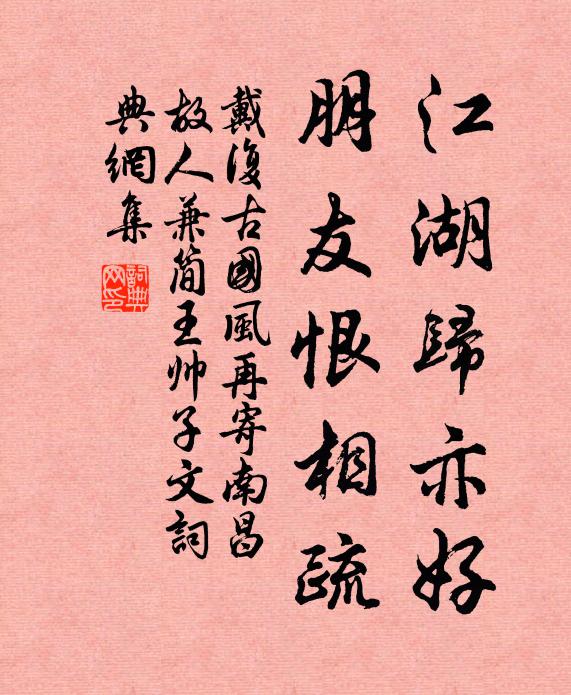 江湖歸亦好
朋友恨相疏
戴復古國風再寄南昌
故人兼簡王帅子文詞
典網集
詞典
网印